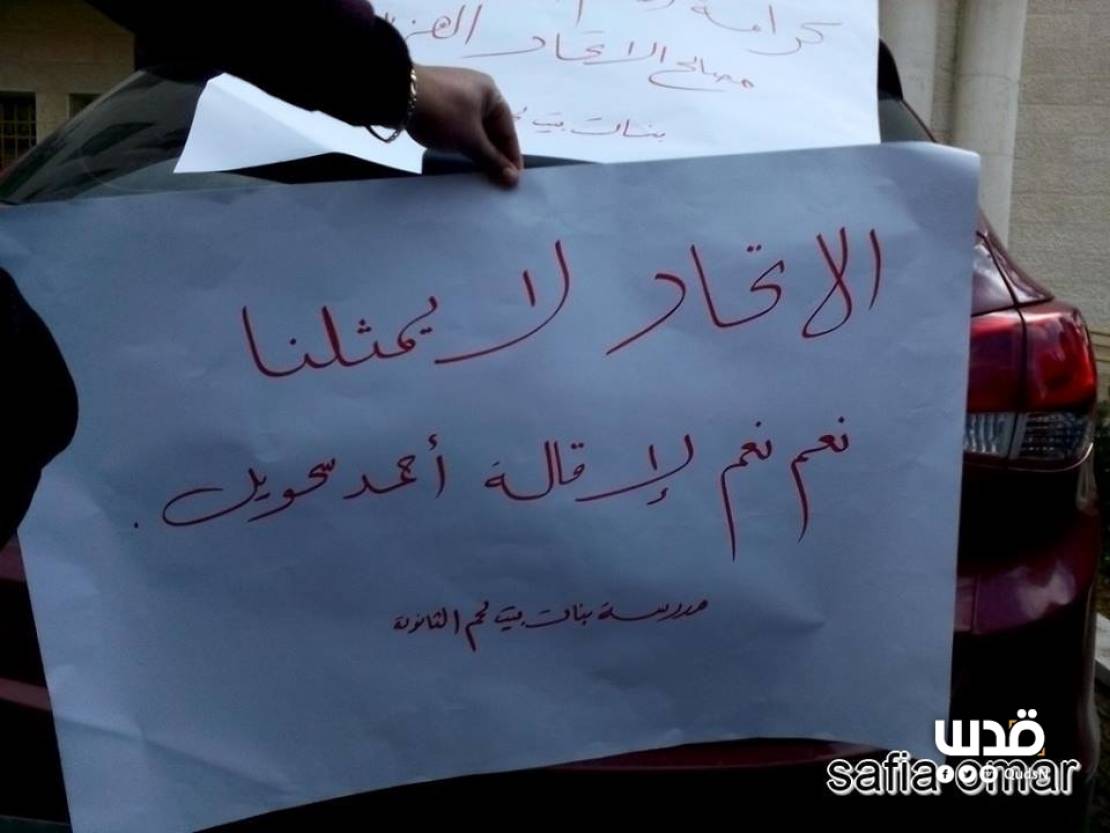 كرامة
مصالح الاتحاد
بنات بيت
الاتحاد لا يمثلنا
نعم نعم لإقالة أحمد سحويل.
مدرسة بنات بيت لحم الثانوية
قدس
QudsN
safia omar